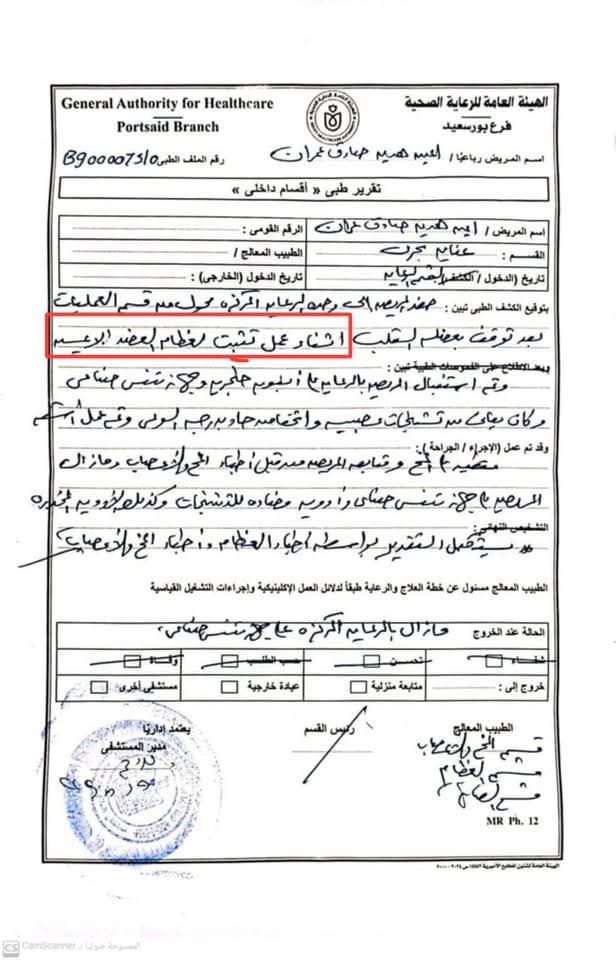 General Authority for Healthcare
Portsaid Branch
الهيئة العامة للرعاية الصحية
فرع بورسعيد
اسم المريض رباعيا / صادق عمران
رقم الملف الطبى
تقرير طبى « أقسام داخلى »
اسم المريض / صادق عمران
الرقم القومى :
القسم :
الطبيب المعالج /
تاريخ (الدخول / الكشف) :
تاريخ الدخول (الخارجى) :
بتوقيع الكشف الطبى تبين : المركزه محول من قسم العمليات
بعد توقف بعضله القلب اثناء عمل تثبت لعظام العضد الايسر
وبعد الاطلاع على الفحوصات الطبية تبين :
وتم استقبال المريض بالرعايه انبوبه حنجريه وجهاز تنفس صناعى
وكان يعانى من تشنجات عصبيه وانخفاض حاد بدرجه الوعى وتم عمل
وقد تم عمل (الإجراء / الجراحة) :
المخ ومتابعه المريض من قبل اطباء المخ والاعصاب ومازال
المريض جهاز تنفس صناعى وأدويه مضاده للتشنجات وكذلك الادويه المخدره
التشخيص النهائى :
يستكمل التقرير بواسطه اطباء العظام وأطباء المخ والأعصاب
الطبيب المعالج مسئول عن خطة العلاج والرعاية طبقاً لدلائل العمل الإكلينيكية وإجراءات التشغيل القياسية
الحالة عند الخروج
مازال بالرعايه المركزه على جهاز تنفس صناعى
شفاء تحسن حسب الطلب وفاة
خروج إلى : متابعة منزلية عيادة خارجية مستشفى أخرى
الطبيب المعالج
رئيس القسم
يعتمد إداريا
مدير المستشفى
قسم المخ والاعصاب
قسم العظام
MR Ph. 12
CS CamScanner الممسوحة ضوئيا بـ